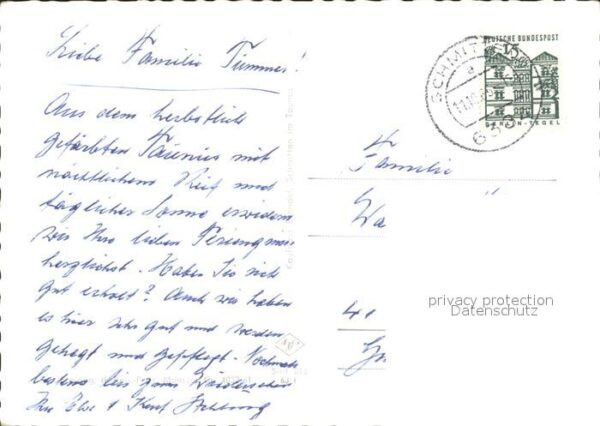 Liebe Familie Timmer!
Aus dem herbstlich
gefärbten Taunus mit
nächtlichem Reif und
täglicher Sonne erwidern
wir Ihre lieben Feriengrüsse
herzlichst. Haben Sie sich
gut erholt? Auch wir haben
es hier sehr gut und werden
gehegt und gepflegt. Nochmals
bestens bis zum Wiedersehen
Ihre und Kurt
DEUTSCHE BUNDESPOST
15
BERLIN-TEGEL
SCHMITTEN
a
Familie
"
Wa
41
privacy protection
Datenschutz